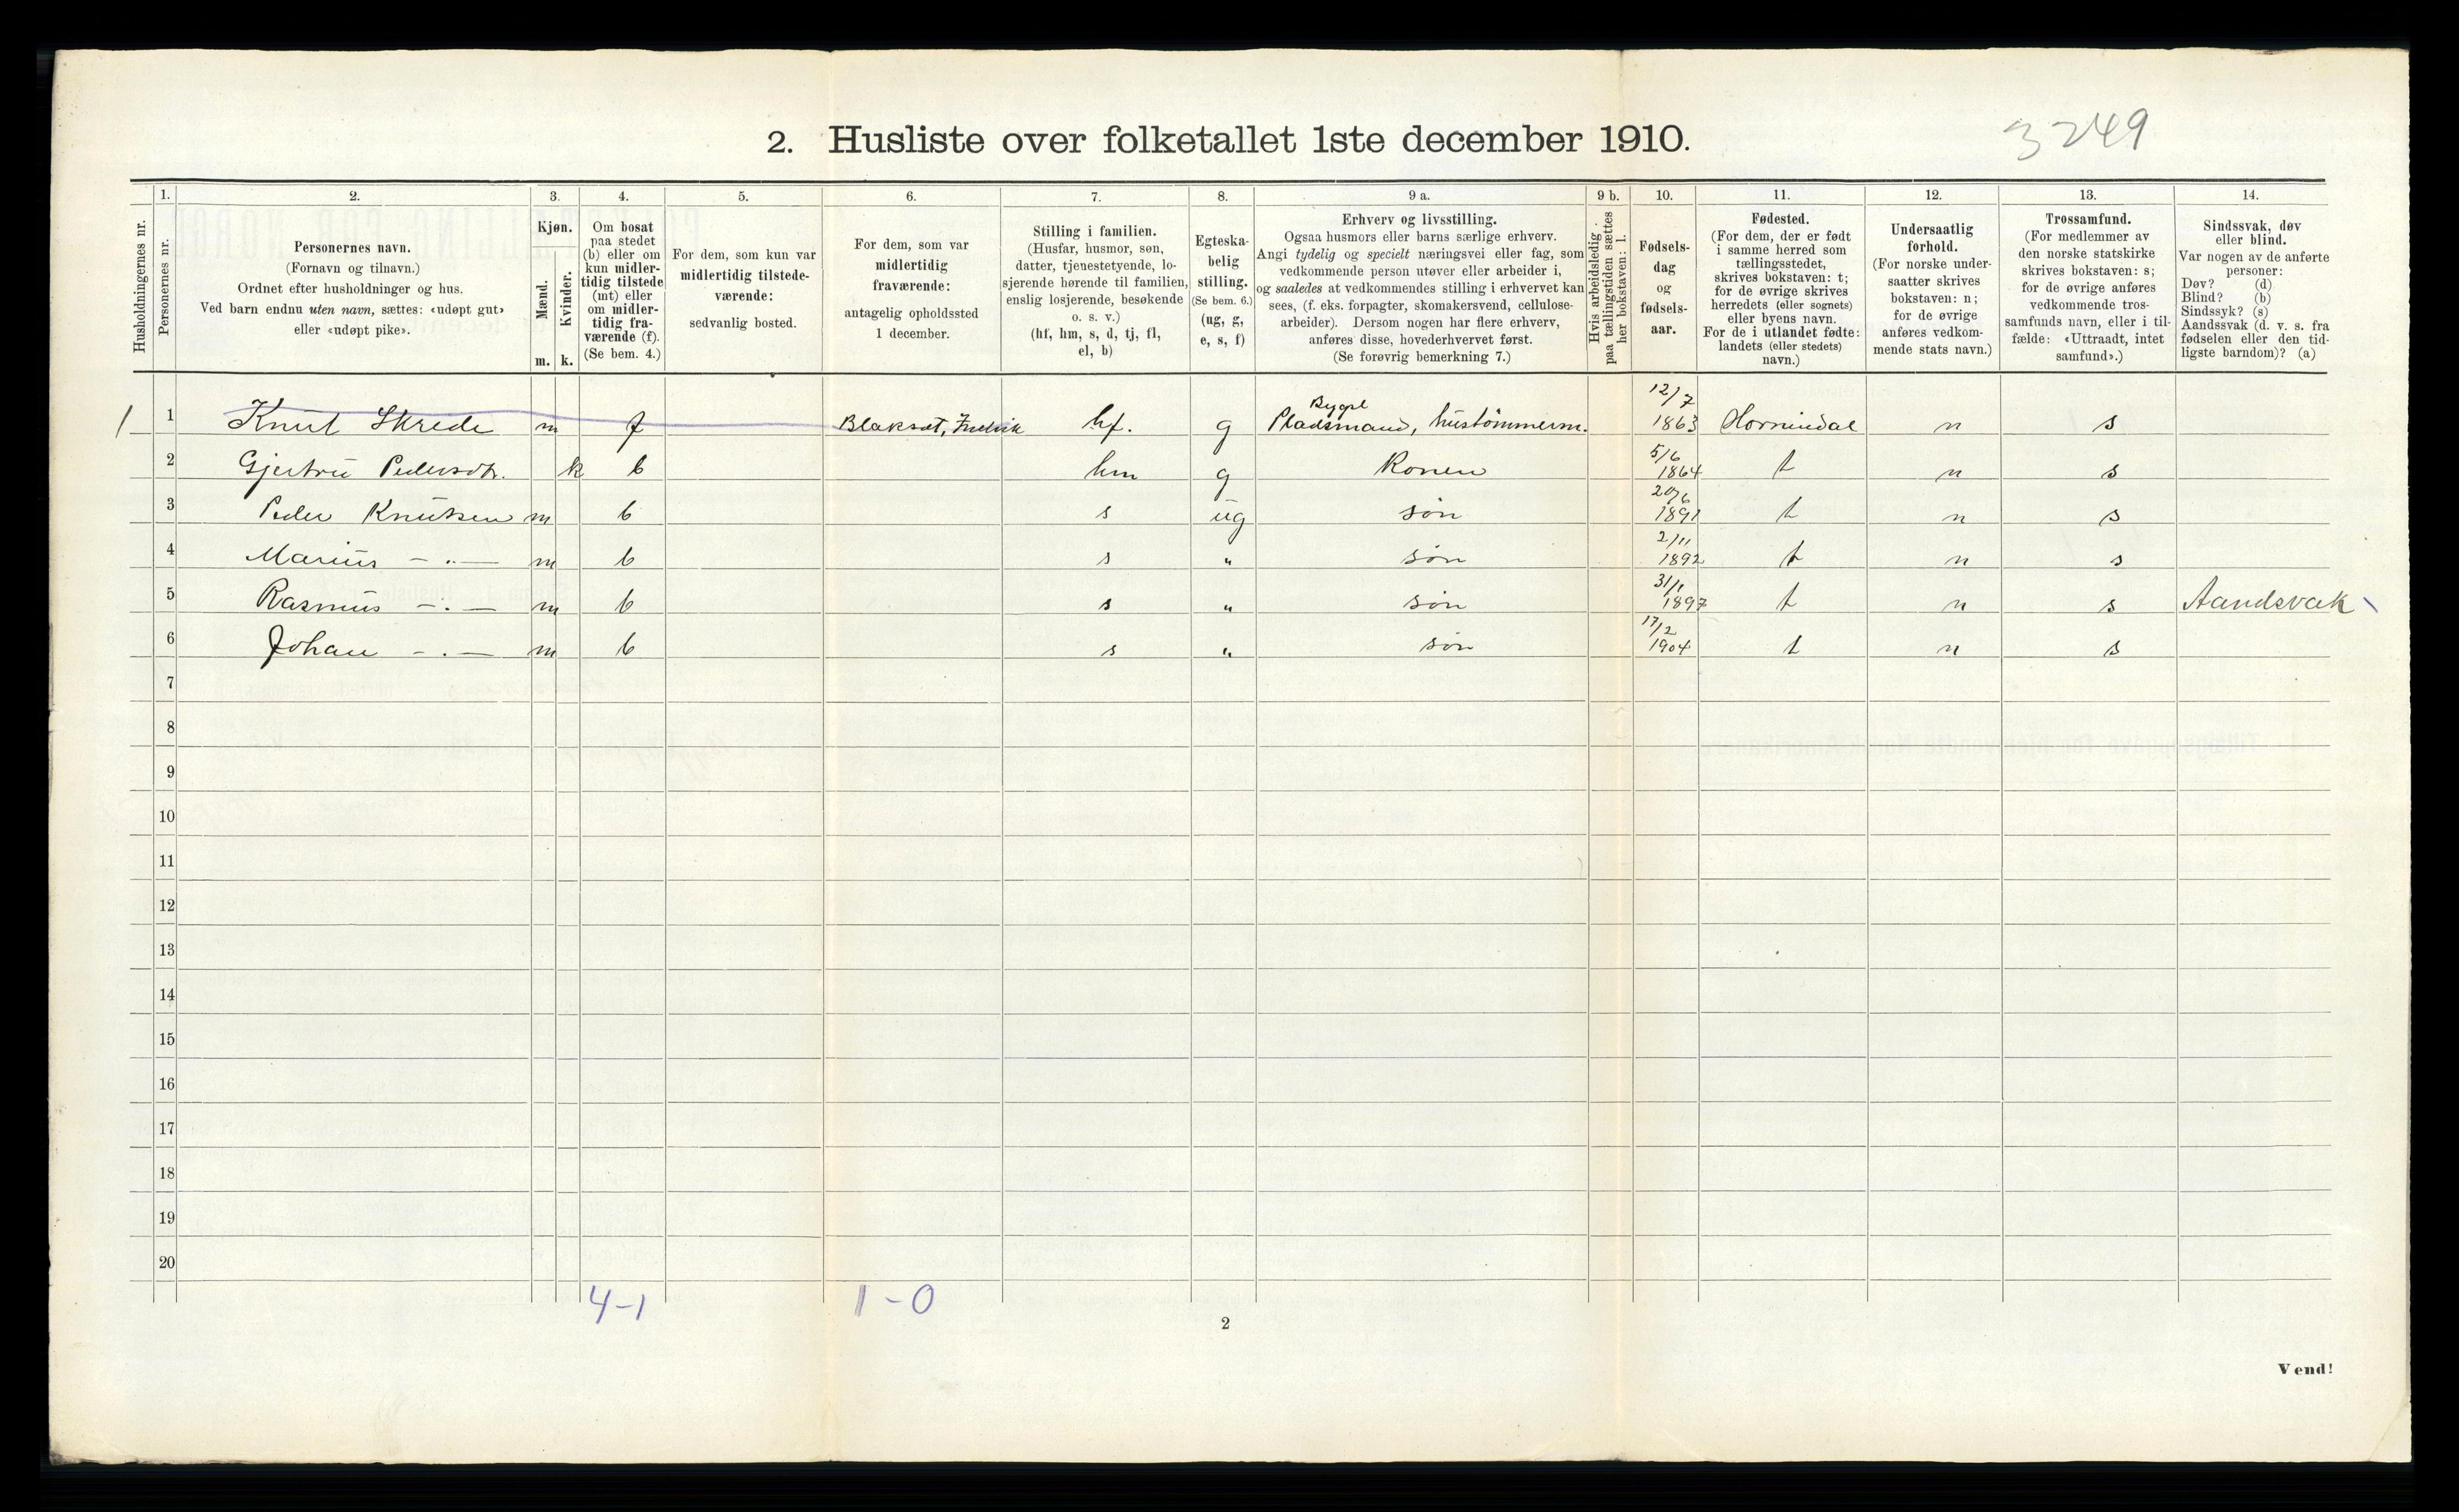 3249
2. Husliste over folketallet 1ste december 1910.
Husholdningernes nr.
1.
Personernes nr.
2.
Personernes navn.
(Fornavn og tilnavn.)
Ordnet efter husholdninger og hus.
Ved barn endnu uten navn, sættes: «udøpt gut»
eller «udøpt pike».
3.
Kjøn.
Mænd.
Kvinder.
m. k.
4.
Om bosat
paa stedet
(b) eller om
kun midler-
tidig tilstede
(mt) eller
om midler-
tidig fra-
værende (f).
(Se bem. 4.)
5.
For dem, som kun var
midlertidig tilstede-
værende:
sedvanlig bosted.
6.
For dem, som var
midlertidig
fraværende:
antagelig opholdssted
1 december.
7.
Stilling i familien.
(Husfar, husmor, søn,
datter, tjenestetyende, lo-
sjerende hørende til familien,
enslig losjerende, besøkende
o. s. v.)
(hf, hm, s, d, tj, fl,
el, b)
8.
Egteska-
belig
stilling.
(Se bem. 6.)
(ug, g,
e, s, f)
9 a.
Erhverv og livsstilling.
Ogsaa husmors eller barns særlige erhverv.
Angi tydelig og specielt næringsvei eller fag, som
vedkommende person utøver eller arbeider i,
og saaledes at vedkommendes stilling i erhvervet kan
sees, (f. eks. forpagter, skomakersvend, cellulose-
arbeider). Dersom nogen har flere erhverv,
anføres disse, hovederhvervet først.
(Se forøvrig bemerkning 7.)
9 b.
Hvis arbeidsledig
paa tællingstiden sættes
her bokstaven: l.
10.
Fødsels-
dag
og
fødsels-
aar.
11.
Fødested.
(For dem, der er født
i samme herred som
tællingsstedet,
skrives bokstaven: t;
for de øvrige skrives
herredets (eller sognets)
eller byens navn.
For de i utlandet fødte:
landets (eller stedets)
navn.)
12.
Undersaatlig
forhold.
(For norske under-
saatter skrives
bokstaven: n;
for de øvrige
anføres vedkom-
mende stats navn.)
13.
Trossamfund.
(For medlemmer av
den norske statskirke
skrives bokstaven: s;
for de øvrige anføres
vedkommende tros-
samfunds navn, eller i til-
fælde: «Uttraadt, intet
samfund».)
14.
Sindssvak, døv
eller blind.
Var nogen av de anførte
personer:
Døv? (d)
Blind? (b)
Sindssyk? (s)
Aandssvak (d. v. s. fra
fødselen eller den tid-
ligste barndom)? (a)
1 1 Knut Skrede m f Blaksæt, hf. g Bygsl Pladsmand, hustømmerm. 12/7 1863 Hornindal n s
2 Gjertrü Pedersdtr. k b hm g Konen 5/6 1864 t n s
3 Peder Knutsen m b s ug søn 20/6 1891 t n s
4 Marius - " - m b s " søn 2/11 1892 t n s
5 Rasmus - " - m b s " søn 31/1 1897 t n s Aandsvak
6 Johan - " - m b s " søn 17/2 1904 t n s
7
8
9
10
11
12
13
14
15
16
17
18
19
20
4-1 1-0
2
Vend!